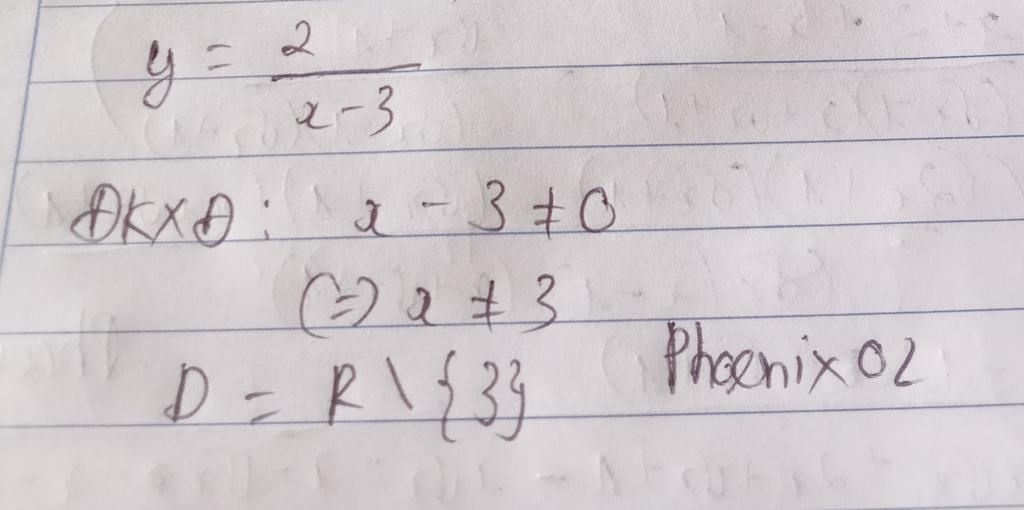 y = 2/(x-3)
ĐKXĐ: x - 3 ≠ 0
(=) x ≠ 3
D = R \ {3}
Phoenix02